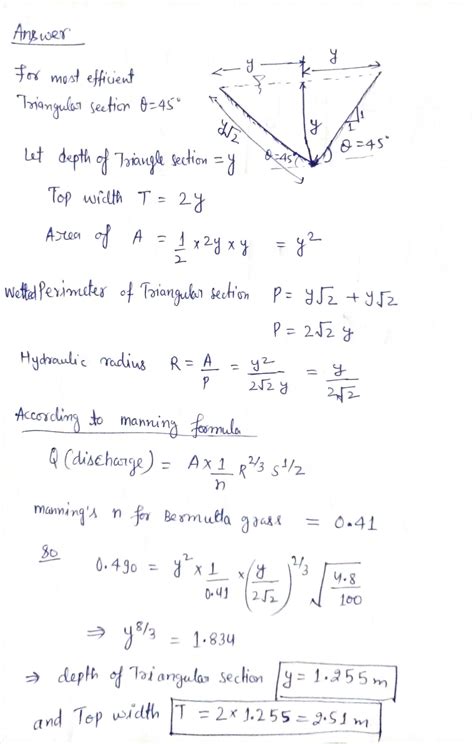 Answer
y y
For most efficient
Triangular section θ=45°
y√2 y 1 1
θ=45° θ=45°
Let depth of Triangle section = y
Top width T = 2y
Area of A = 1/2 × 2y × y = y²
wetted Perimeter of Triangular section P = y√2 + y√2
P = 2√2 y
Hydraulic radius R = A/P = y²/2√2 y = y/2√2
According to manning formula
Q (discharge) = A × 1/n R^2/3 S^1/2
manning's n for Bermutta grass = 0.41
so 0.490 = y² × 1/0.41 × (y/2√2)^2/3 √4.8/100
⇒ y^8/3 = 1.834
⇒ depth of Triangular section y = 1.255 m
and Top width T = 2 × 1.255 = 2.51 m